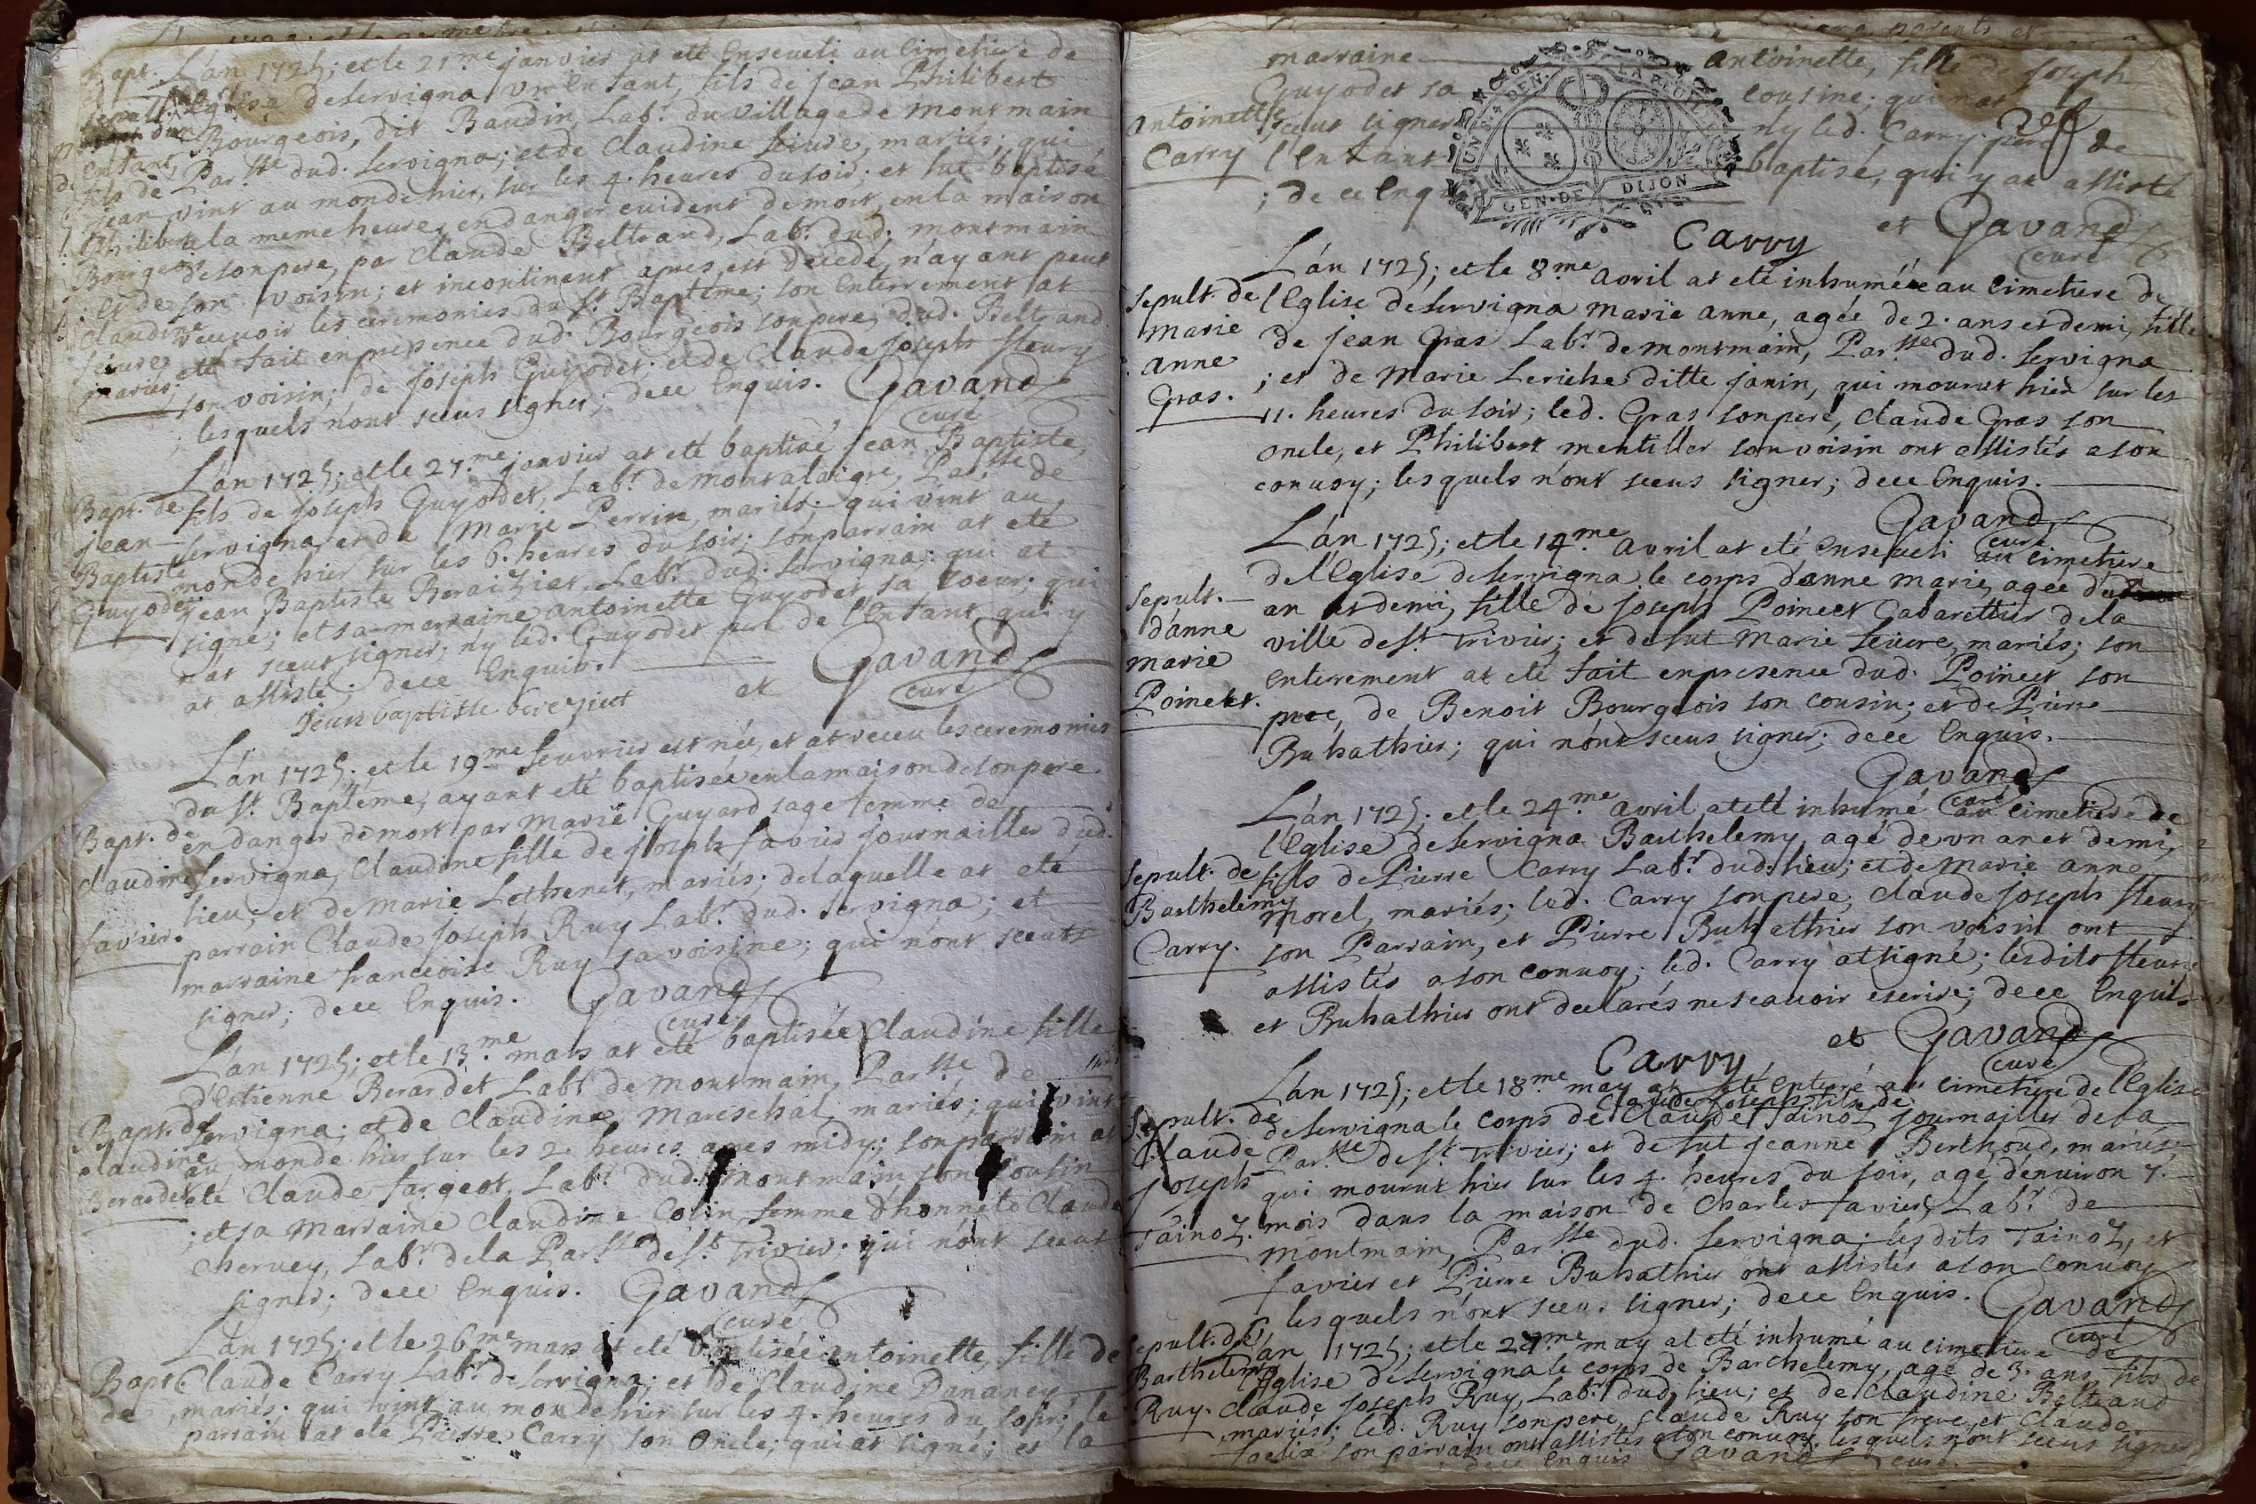 Bapt.
sepult.
dun
enfant
fils de
jean
Philibert
Bourgeois
et de
Claudine
feivre
mariés.
L'an 1725; et le 21.me janvier at eté Enseveli au Cimetiere de
l'Eglise de servigna un Enfant, fils de jean Philibert
Bourgeois, dit Baudin, Labr. du village de montmain
Par.sse dud. servigna; et de Claudine feivre, mariés; qui
vint au monde hier, sur les 4. heures du soir; et fut baptisé
a la meme heure, en danger evident de mort, en la maison
de son pere, par Claude Beltrand, Labr. dud. montmain
son voisin; et incontinent apres, est decedé, n'ayant peut
recevoir les ceremonies du St. Baptême; son Enterrement at
eté fait en presence dud. Bourgeois son pere, dud. Beltrand
son voisin; de joseph Guyodet; et de Claude joseph fleury
; lesquels n'ont sceus signer; de ce Enquis. Gavand
curé
Bapt. de
jean
Baptiste
Guyodet
L'an 1725; et le 27.me janvier at eté baptisé jean Baptiste,
fils de joseph Guyodet, Labr. de montalaigre, Par.sse de
servigna, et de Marie Perrin, mariés; qui vint au
monde hier sur les 6. heures du soir; son parrain at eté
jean Baptiste Beraiziat, Labr. dud. servigna; qui at
signé; et sa marraine antoinette Guyodet, sa soeur; qui
n'at sceut signer, n'y led. Guyodet pere de l'Enfant, qui y
at assisté; de ce Enquis. et Gavand
jean baptiste bereziat curé
Bapt. de
Claudine
favier.
L'an 1725; et le 19.me feuvrier est née, et at receu les ceremonies
du St. Baptême, ayant eté baptisée en la maison de son pere
en danger de mort par Marie Guyard sage femme de
servigna, Claudine fille de joseph favier journaillier dud.
lieu; et de Marie Lothenet, mariés; de laquelle at eté
parrain Claude joseph Ruy Labr. dud. servigna; et
marraine francoise Ruy sa voisine; qui n'ont sceuts
signer; de ce Enquis. Gavand
curé
Bapt. de
Claudine
Berardet
L'an 1725; et le 13.me mars at eté baptisée Claudine fille
d'Estienne Berardet Labr. de montmain, Par.sse de
servigna; et de Claudine Mareschal, mariés; qui vint
au monde hier sur les 2. heures apres midy; son parrain at
eté Claude fargeot, Labr. dud. montmain son Cousin
; et sa Marraine Claudine Colin, femme d'honnete Claude
Chervey, Labr. de la Par.sse de St. Trivier; qui n'ont sceut
signer; de ce Enquis. Gavand
curé
Bapt.
de
L'an 1725; et le 26.me mars at eté baptisée antoinette, fille de
Claude Carry Labr. de servigna; et de Claudine Dananey
, mariés; qui vint au monde hier sur les 4. heures du soir; le
parrain at eté Pierre Carry son Oncle; qui at signé; et la
antoinette
Carry
marraine antoinette, fille de joseph
Guyodet sa cousine; qui n'at
sceut signer n'y led. Carry pere de
l'Enfant baptisé, qui y at assisté
; de ce Enquis
Carry et Gavand
curé
UN DEN. LA FEUILLE
GEN. DE DIJON
sepult. de
marie
anne
Gras.
L'an 1725; et le 8.me avril at eté inhumée au Cimetiere de
l'Eglise de servigna marie anne, agée de 2. ans et demi, fille
de jean Gras Labr. de montmain, Par.sse dud. servigna
; et de Marie Leriche ditte janin, qui mourut hier sur les
11. heures du soir; led. Gras son pere, Claude Gras son
Oncle, et Philibert mentiller son voisin ont assistés a son
convoy; lesquels n'ont sceus signer; de ce Enquis.
Gavand
curé
sepult.
d'anne
marie
Poincet.
L'an 1725; et le 14.me avril at eté Enseveli au Cimetiere
de l'Eglise de servigna le corps d'anne marie, agée d'un
an et demi, fille de joseph Poincet Cabarettier de la
ville de St. Trivier; et de fut Marie feivre, mariés; son
Enterement at eté fait en presence dud. Poincet son
pere, de Benoit Bourgeois son cousin; et de Pierre
Buhathier; qui n'ont sceus signer; de ce Enquis.
Gavand
curé
sepult. de
Barthelemy
Carry.
L'an 1725; et le 24.me avril at eté inhumé au Cimetiere de
l'Eglise de servigna Barthelemy agé de un an et demi,
fils de Pierre Carry Labr. dud. lieu; et de Marie anne
morel, mariés; led. Carry son pere, Claude joseph fleury
son Parrain, et Pierre Buhathier son voisin ont
assistés a son convoy; led. Carry at signé; lesdits fleury
et Buhathier ont declarés ne scavoir escrire; de ce Enquis
Carry et Gavand
curé
sepult. de
Claude
joseph
Tainoz.
L'an 1725; et le 18.me may at eté Enterré au Cimetiere de l'Eglise
Claude joseph fils de
de servigna le corps de Claude Tainoz journaillier de la
Par.sse de St. Trivier; et de fut jeanne Berthoud, mariés,
qui mourut hier sur les 4. heures du soir, agé d'environ 7.
mois dans la maison de Charles favier, Labr. de
montmain, Par.sse dud. servigna; lesdits Tainoz, et
favier et Pierre Buhathier ont assistés a son convoy
lesquels n'ont sceus signer; de ce Enquis. Gavand
curé
sepult. de
Barthelemy
Ruy.
L'an 1725; et le may at eté inhumé au Cimetiere de
l'Eglise de servigna le corps de Barthelemy, agé de 3. ans, fils de
Claude joseph Ruy, Labr. dud. lieu; et de Claudine Beltrand
, mariés; led. Ruy son pere, Claude Ruy son frere, et Claude
faelix son parrain ont assistés a son convoy, lesquels n'ont sceus signer
de ce Enquis Gavand curé